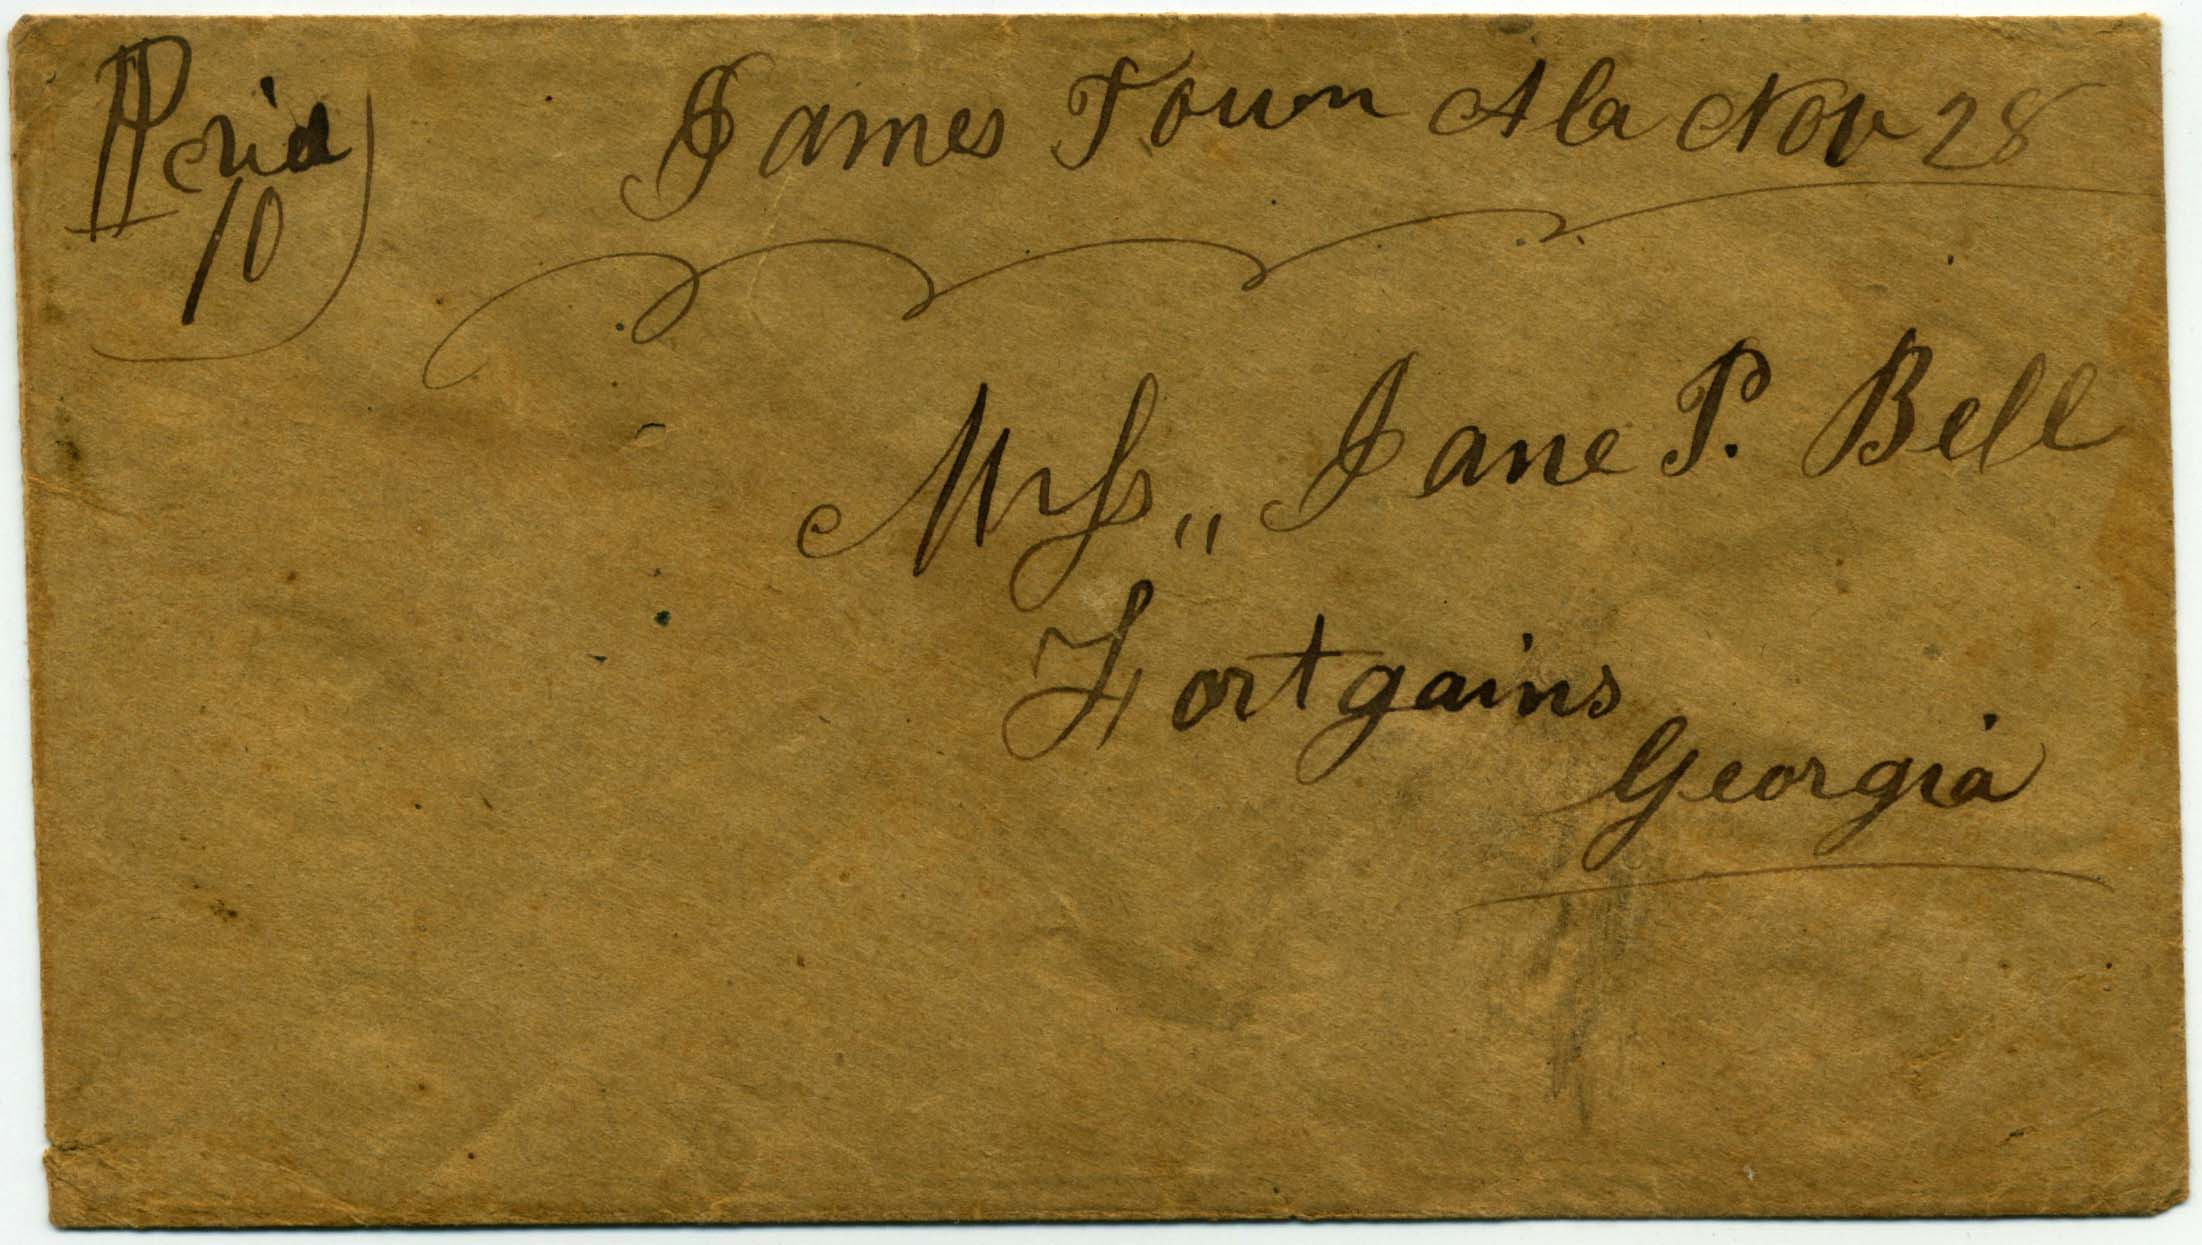 Paid
10
James Town Ala Nov 28
Mrss,, Jane P. Bell
Fortgains
Georgia